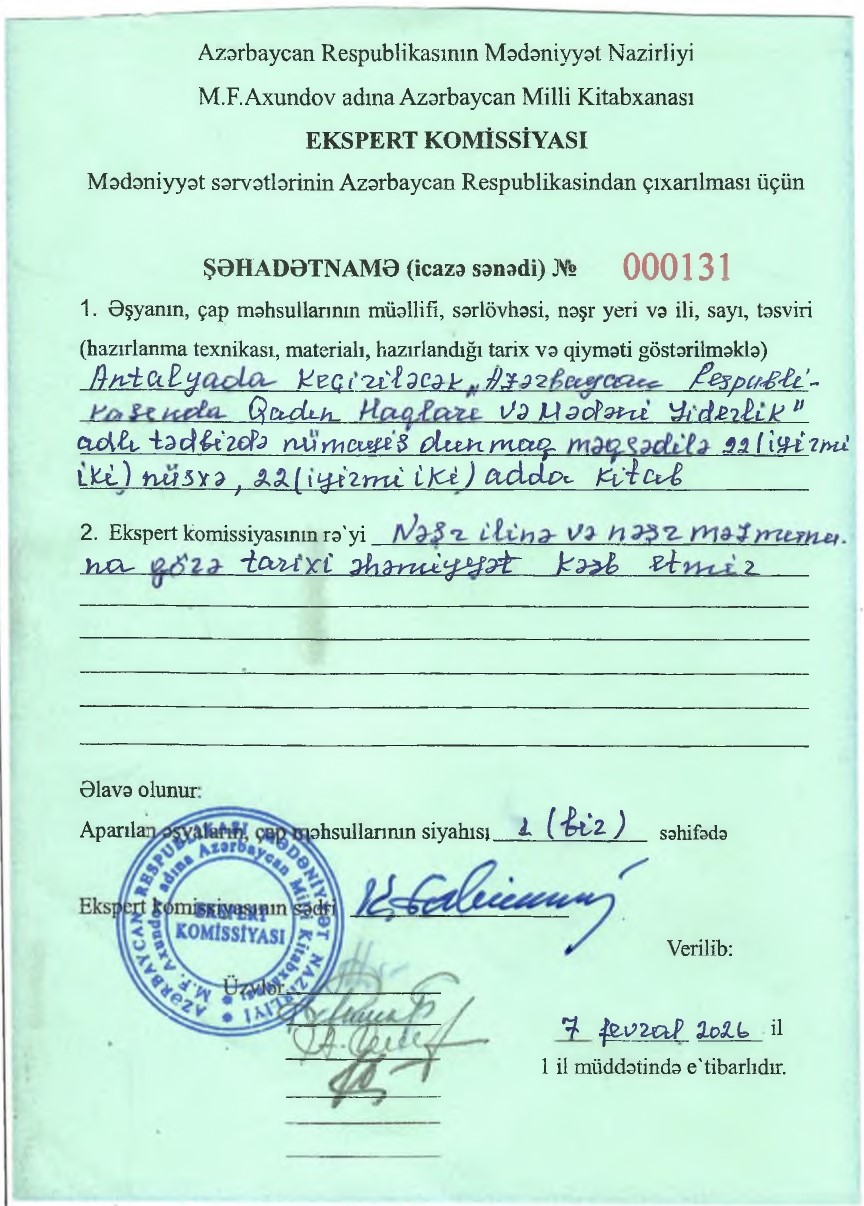 Azərbaycan Respublikasının Mədəniyyət Nazirliyi
M.F.Axundov adına Azərbaycan Milli Kitabxanası
EKSPERT KOMİSSİYASI
Mədəniyyət sərvətlərinin Azərbaycan Respublikasindan çıxarılması üçün
ŞƏHADƏTNAMƏ (icazə sənədi) № 000131
1. Əşyanın, çap məhsullarının müəllifi, sərlövhəsi, nəşr yeri və ili, sayı, təsviri
(hazırlanma texnikası, materialı, hazırlandığı tarix və qiyməti göstərilməklə)
Antalyada keçiriləcək „Azərbaycan Respubli-
kasında Qadın Haqları və Mədəni Liderlik"
adlı tədbirdə nümayiş olunmaq məqsədilə 22 (iyirmi
iki) nüsxə, 22 (iyirmi iki) adda kitab
2. Ekspert komissiyasının rə`yi Nəşr ilinə və nəşr məzmunu-
na görə tarixi əhəmiyyət kəsb etmir
Əlavə olunur:
Aparılan əşyaların, çap məhsullarının siyahısı 1 (bir) səhifədə
Ekspert komissiyasının sədri
AZƏRBAYCAN RESPUBLİKASI MƏDƏNİYYƏT NAZİRLİYİ
M.F. Axundov adına Azərbaycan Milli Kitabxanası
EKSPERT
KOMİSSİYASI
Verilib:
Üzvlər
7 fevral 2026 il
1 il müddətində e`tibarlıdır.